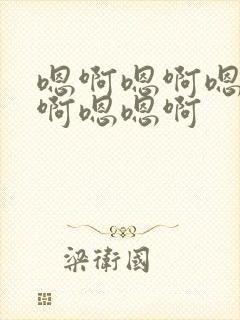 嗯啊嗯啊嗯
啊嗯嗯啊
梁衛國